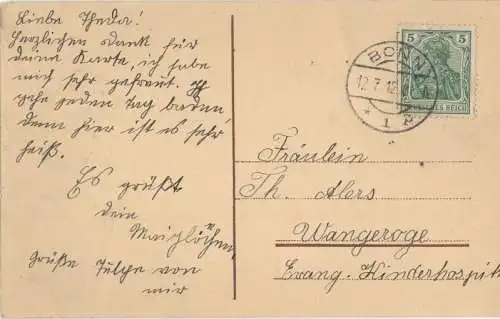 Liebe Theda!
Herzlichen Dank für
deine Karte, ich habe
mich sehr gefreut. Ich
gehe jeden Tag baden
denn hier ist es sehr
heiß.
Es grüßt
dein
Maiglöckchen
Grüße von
mir
5 5
DEUTSCHES REICH
BONN
12.7.12
* 1 
Fräulein
Th. Alers
Wangeroge
Evang. Kinderhospit